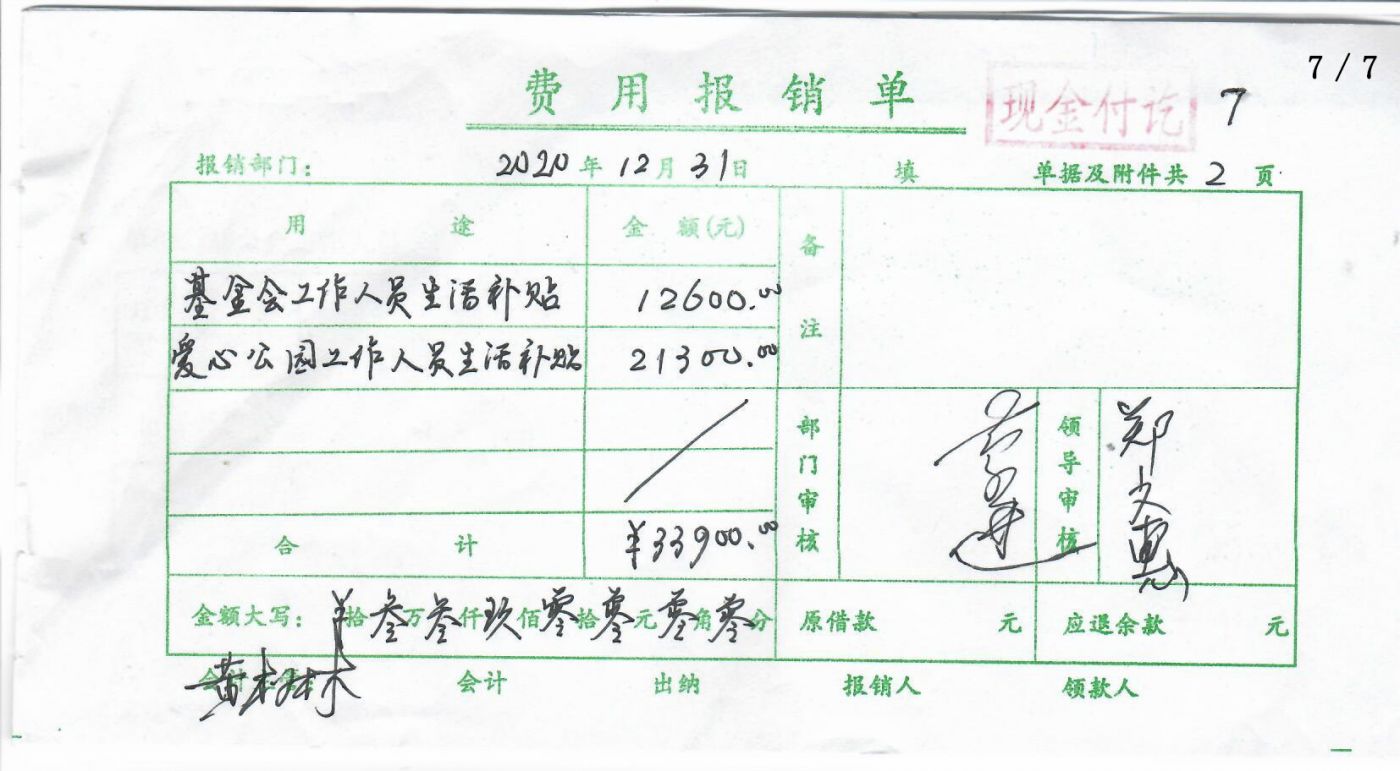 7/7
费用报销单 现金付讫 7
报销部门： 2020年12月31日 填 单据及附件共2页
用途 金额(元) 备注
基金会工作人员生活补贴 12600.00
爱心公园工作人员生活补贴 21300.00
部门审核 领导审核 郑文惠
合计 ¥33900.00
金额大写：¥拾叁万叁仟玖佰零拾零元零角零分 原借款 元 应退余款 元
会计 出纳 报销人 领款人